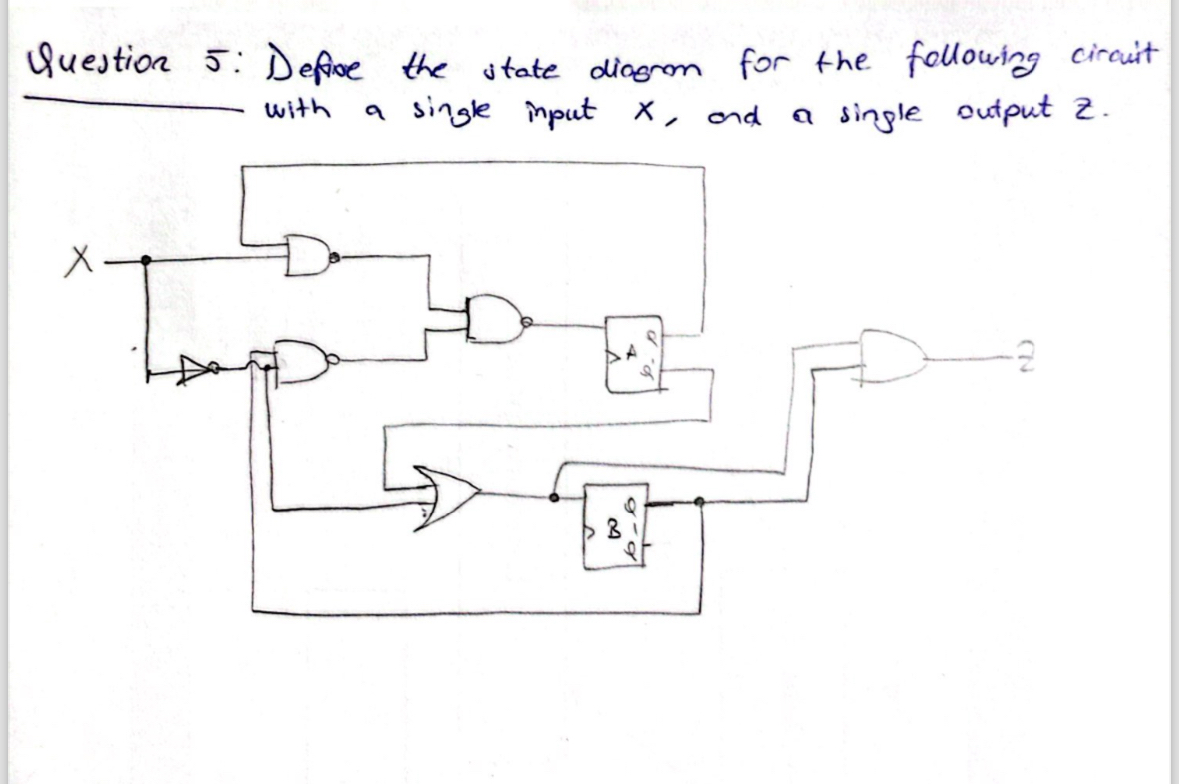 Question 5: Define the state diagram for the following circuit
with a single input X, and a single output Z.
X
A
Q
Q
Z
B
Q
Q